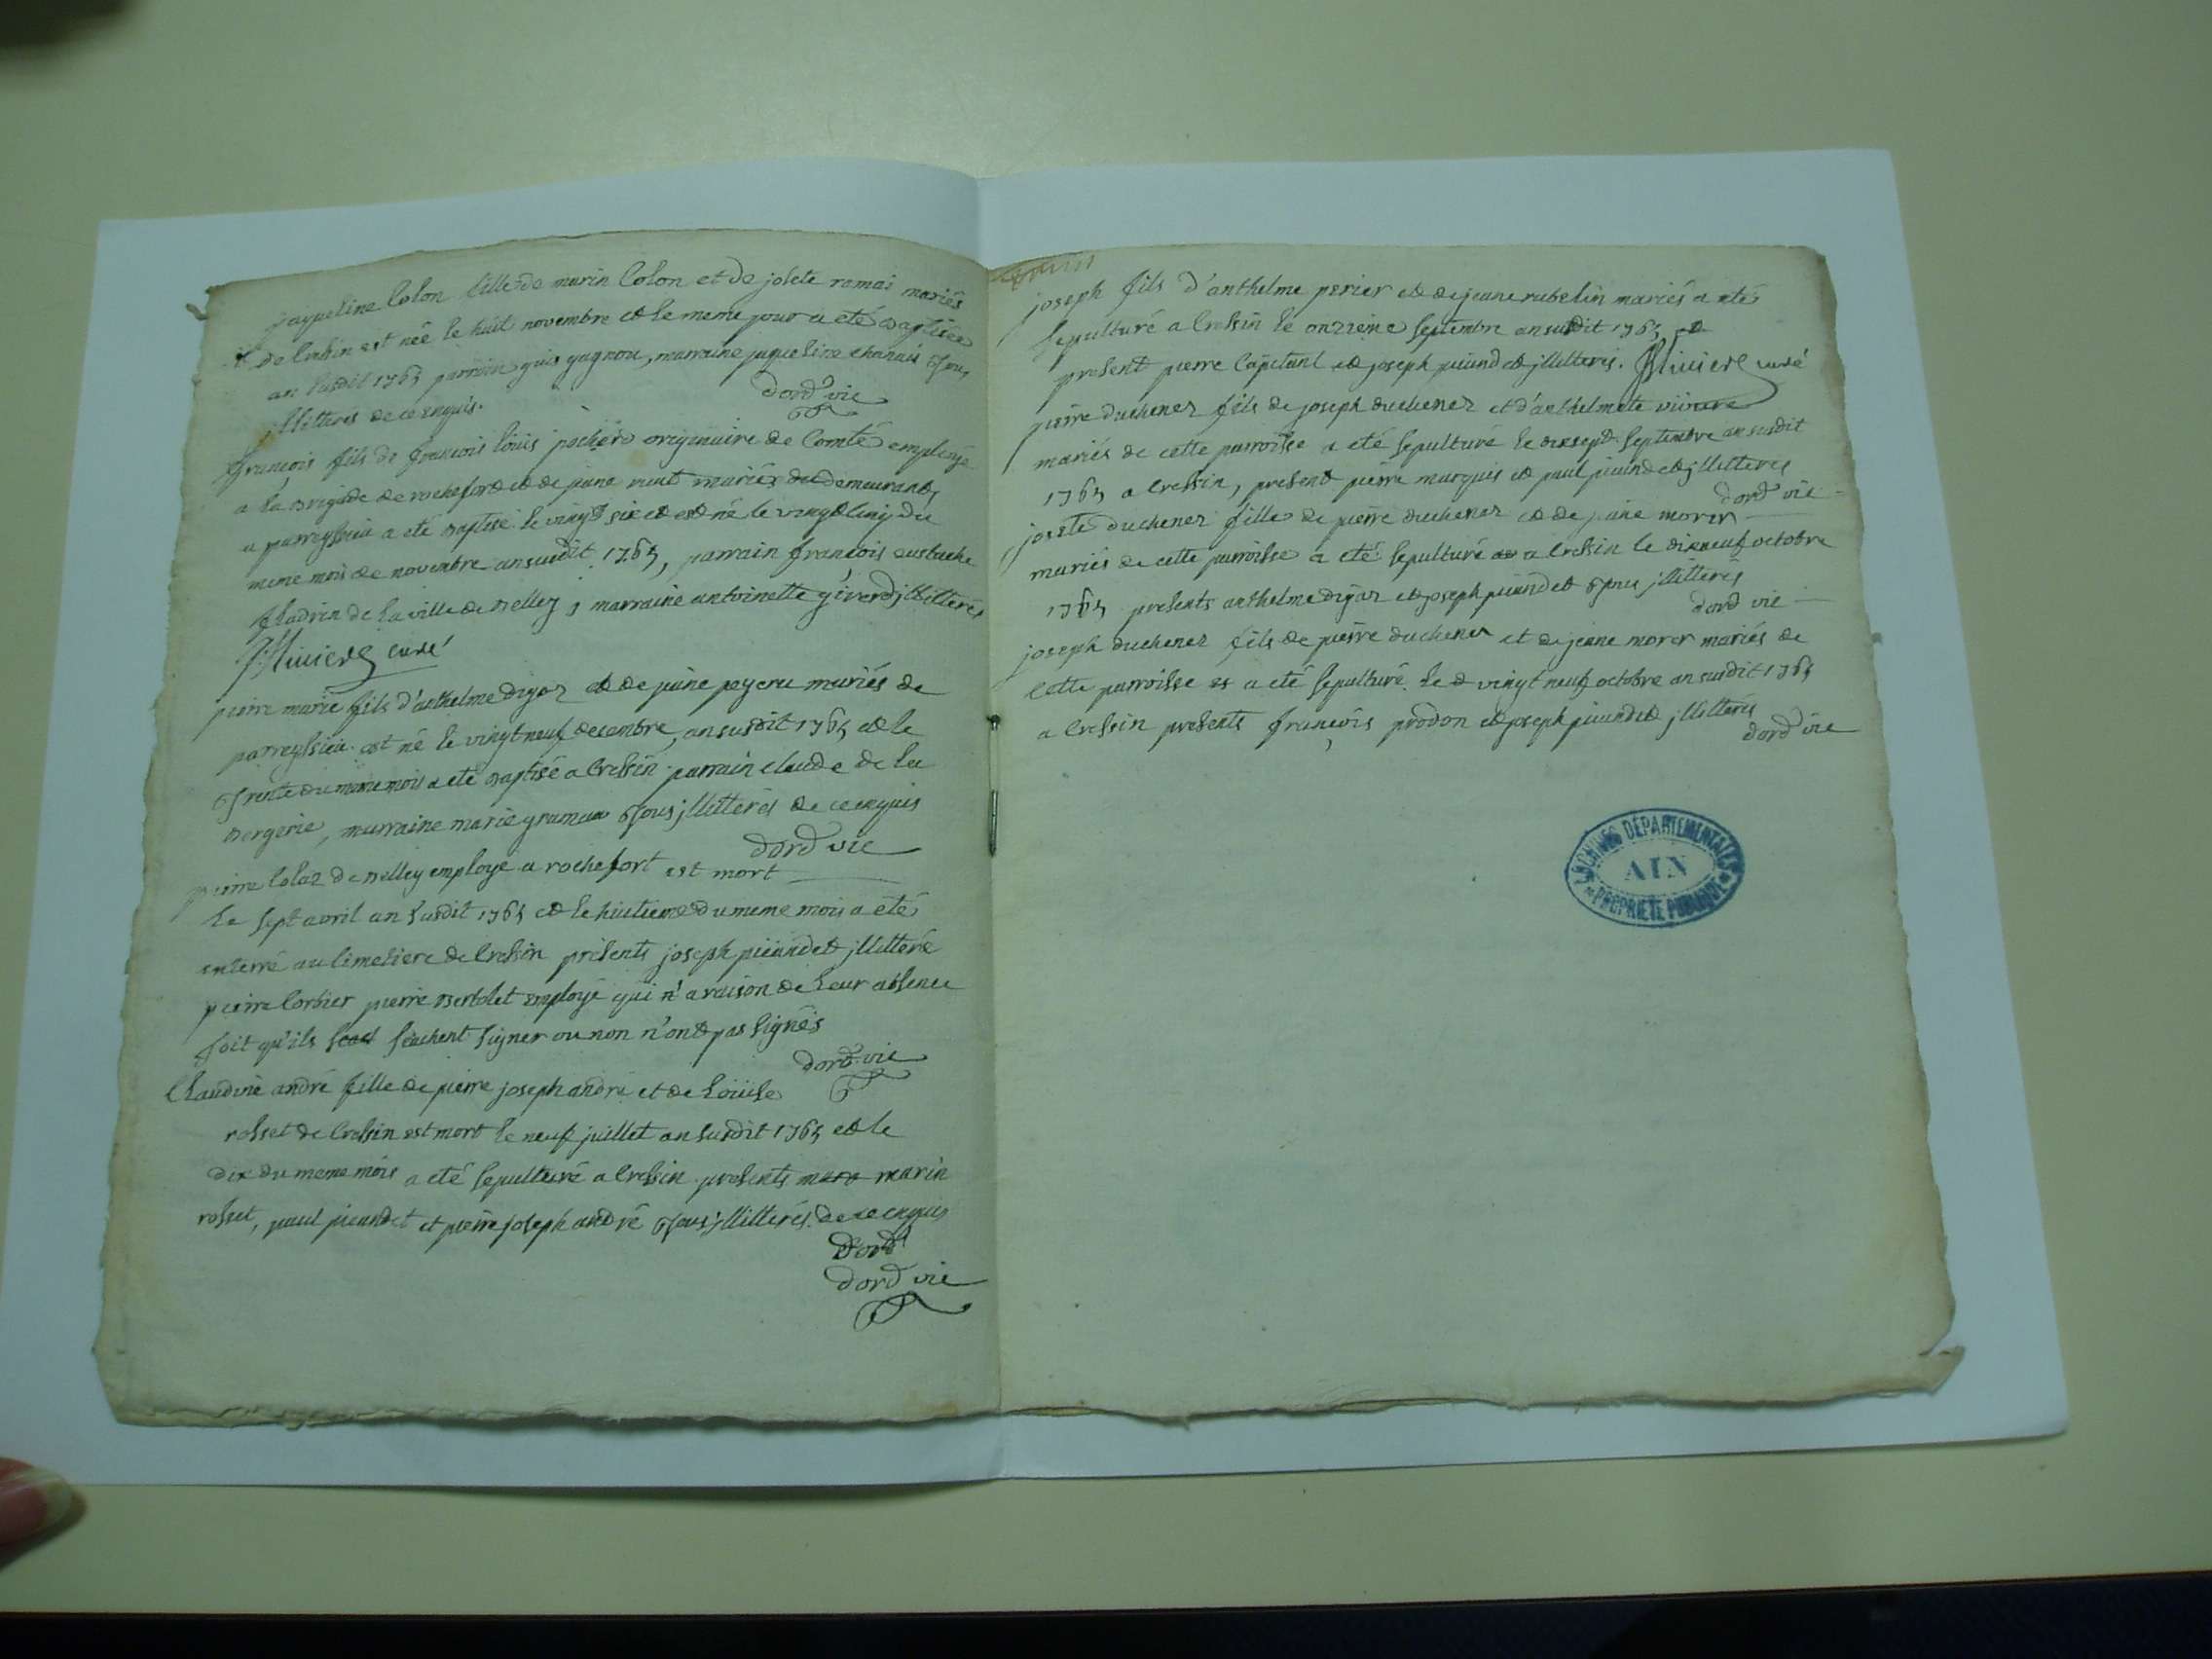 jaqueline Colon fille de marin Colon et de josete ramai mariés
de Cressin est née le huit novembre et le meme jour a eté baptisée
an susdit 1765 parrain guis gagnon, marraine jaqueline chanais tous
jllitterés de ce enquis.
dord vic
françois fils de françois louis pochet origenaire de Comté employé
a la brigade de rochefort et de jane mariés demeurants
a parreyssieu a eté baptisé le vingt six et est né le vingt cinq du
meme mois de novembre an susdit 1765, parrain françois eustache
fladrin de la ville de belley, marraine antoinette giverd jllitterés
curé
pierre marie fils d'anthelme digoz et de jane peyeru mariés de
parreyssieu est né le vingt neuf decembre, an susdit 1765 et le
trente du meme mois a eté baptisé a Cressin parrain claude de la
bergerie, marraine marie tous jllitterés de ce enquis
dord vic
pierre Colaz de belley employé a rochefort est mort
le sept avril an susdit 1765 et le huitieme du meme mois a eté
enterré au Cimetiere de Cressin présents joseph piaudet jllitteré
pierre Corbier pierre bertolet employé qui n'a raison de leur absence
soit qu'ils sçachent signer ou non n'ont pas signés
dord vic
Claudine andré fille de pierre joseph andré et de Loüise
rosset de Cressin est mort le neuf juillet an susdit 1765 et le
dix du meme mois a eté sepulturé a Cressin presents marin
rosset, paul piaudet et pierre joseph andré tous jllitterés de ce enquis
dord
dord vic
joseph fils d'anthelme perier et de jeane rubelin mariés a eté
sepulturé a Cressin le onzieme septembre an susdit 1765
present pierre Capitant et joseph piaudet jllitterés. curé
pierre duchenez fils de joseph duchenez et d'anthelmete
mariés de cette parroisse a eté sepulturé le dixsept septembre an susdit
1765 a Cressin, present pierre marquis et paul piaudet jllitterés
dord vic
josete duchenez fille de pierre duchenez et de jane morer
mariés de cette parroisse a eté sepulturé a Cressin le dixneuf octobre
1765 presents anthelme digoz et joseph piaudet tous jllitterés
dord vic
joseph duchenez fils de pierre duchenez et de jeane morer mariés de
Cette parroisse a eté sepulturé le vingt neuf octobre an susdit 1765
a Cressin presents françois prodon et joseph piaudet jllitterés
dord vic
ARCHIVES DÉPARTEMENTALES
AIN
PROPRIÉTÉ PUBLIQUE